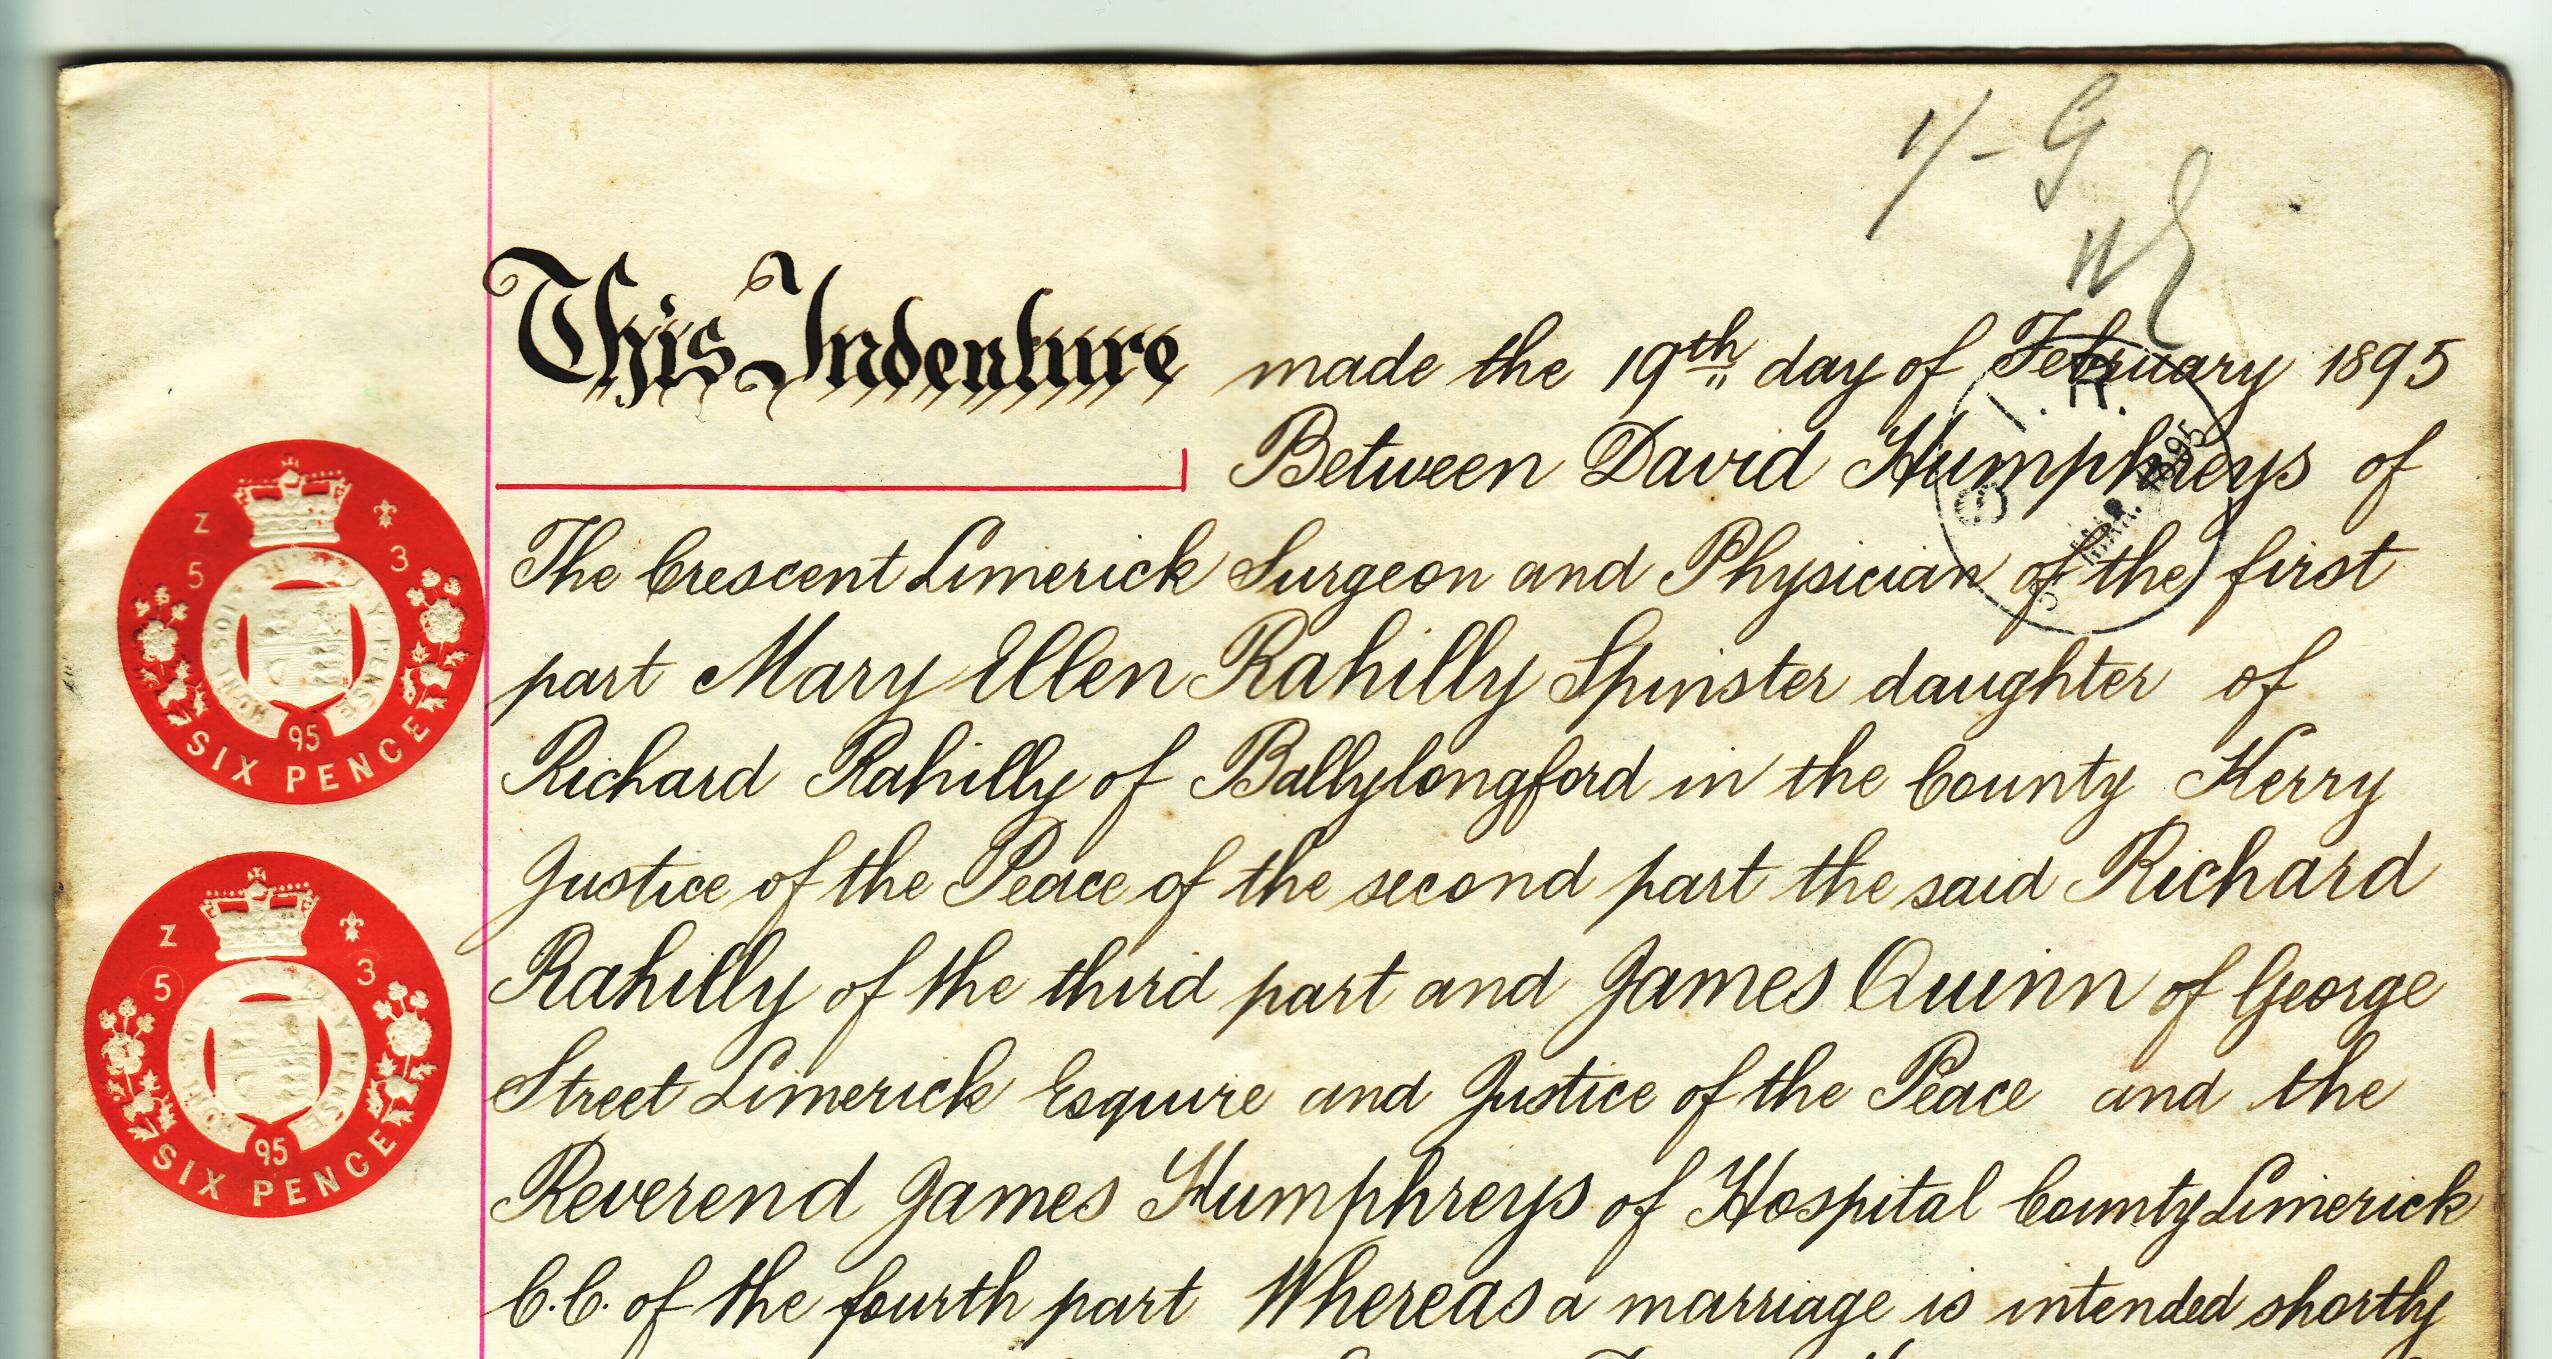 1/- G
This Indenture made the 19th day of February 1895
Between David Humphreys of
The Crescent Limerick Surgeon and Physician of the first
part Mary Ellen Rahilly Spinster daughter of
Richard Rahilly of Ballylongford in the County Kerry
Justice of the Peace of the second part the said Richard
Rahilly of the third part and James Quinn of George
Street Limerick Esquire and Justice of the Peace and the
Reverend James Humphreys of Hospital County Limerick
C.C. of the fourth part Whereas a marriage is intended shortly
I.R.
MAR. 1895
Z
5 3
95
SIX PENCE
Z
5 3
95
SIX PENCE